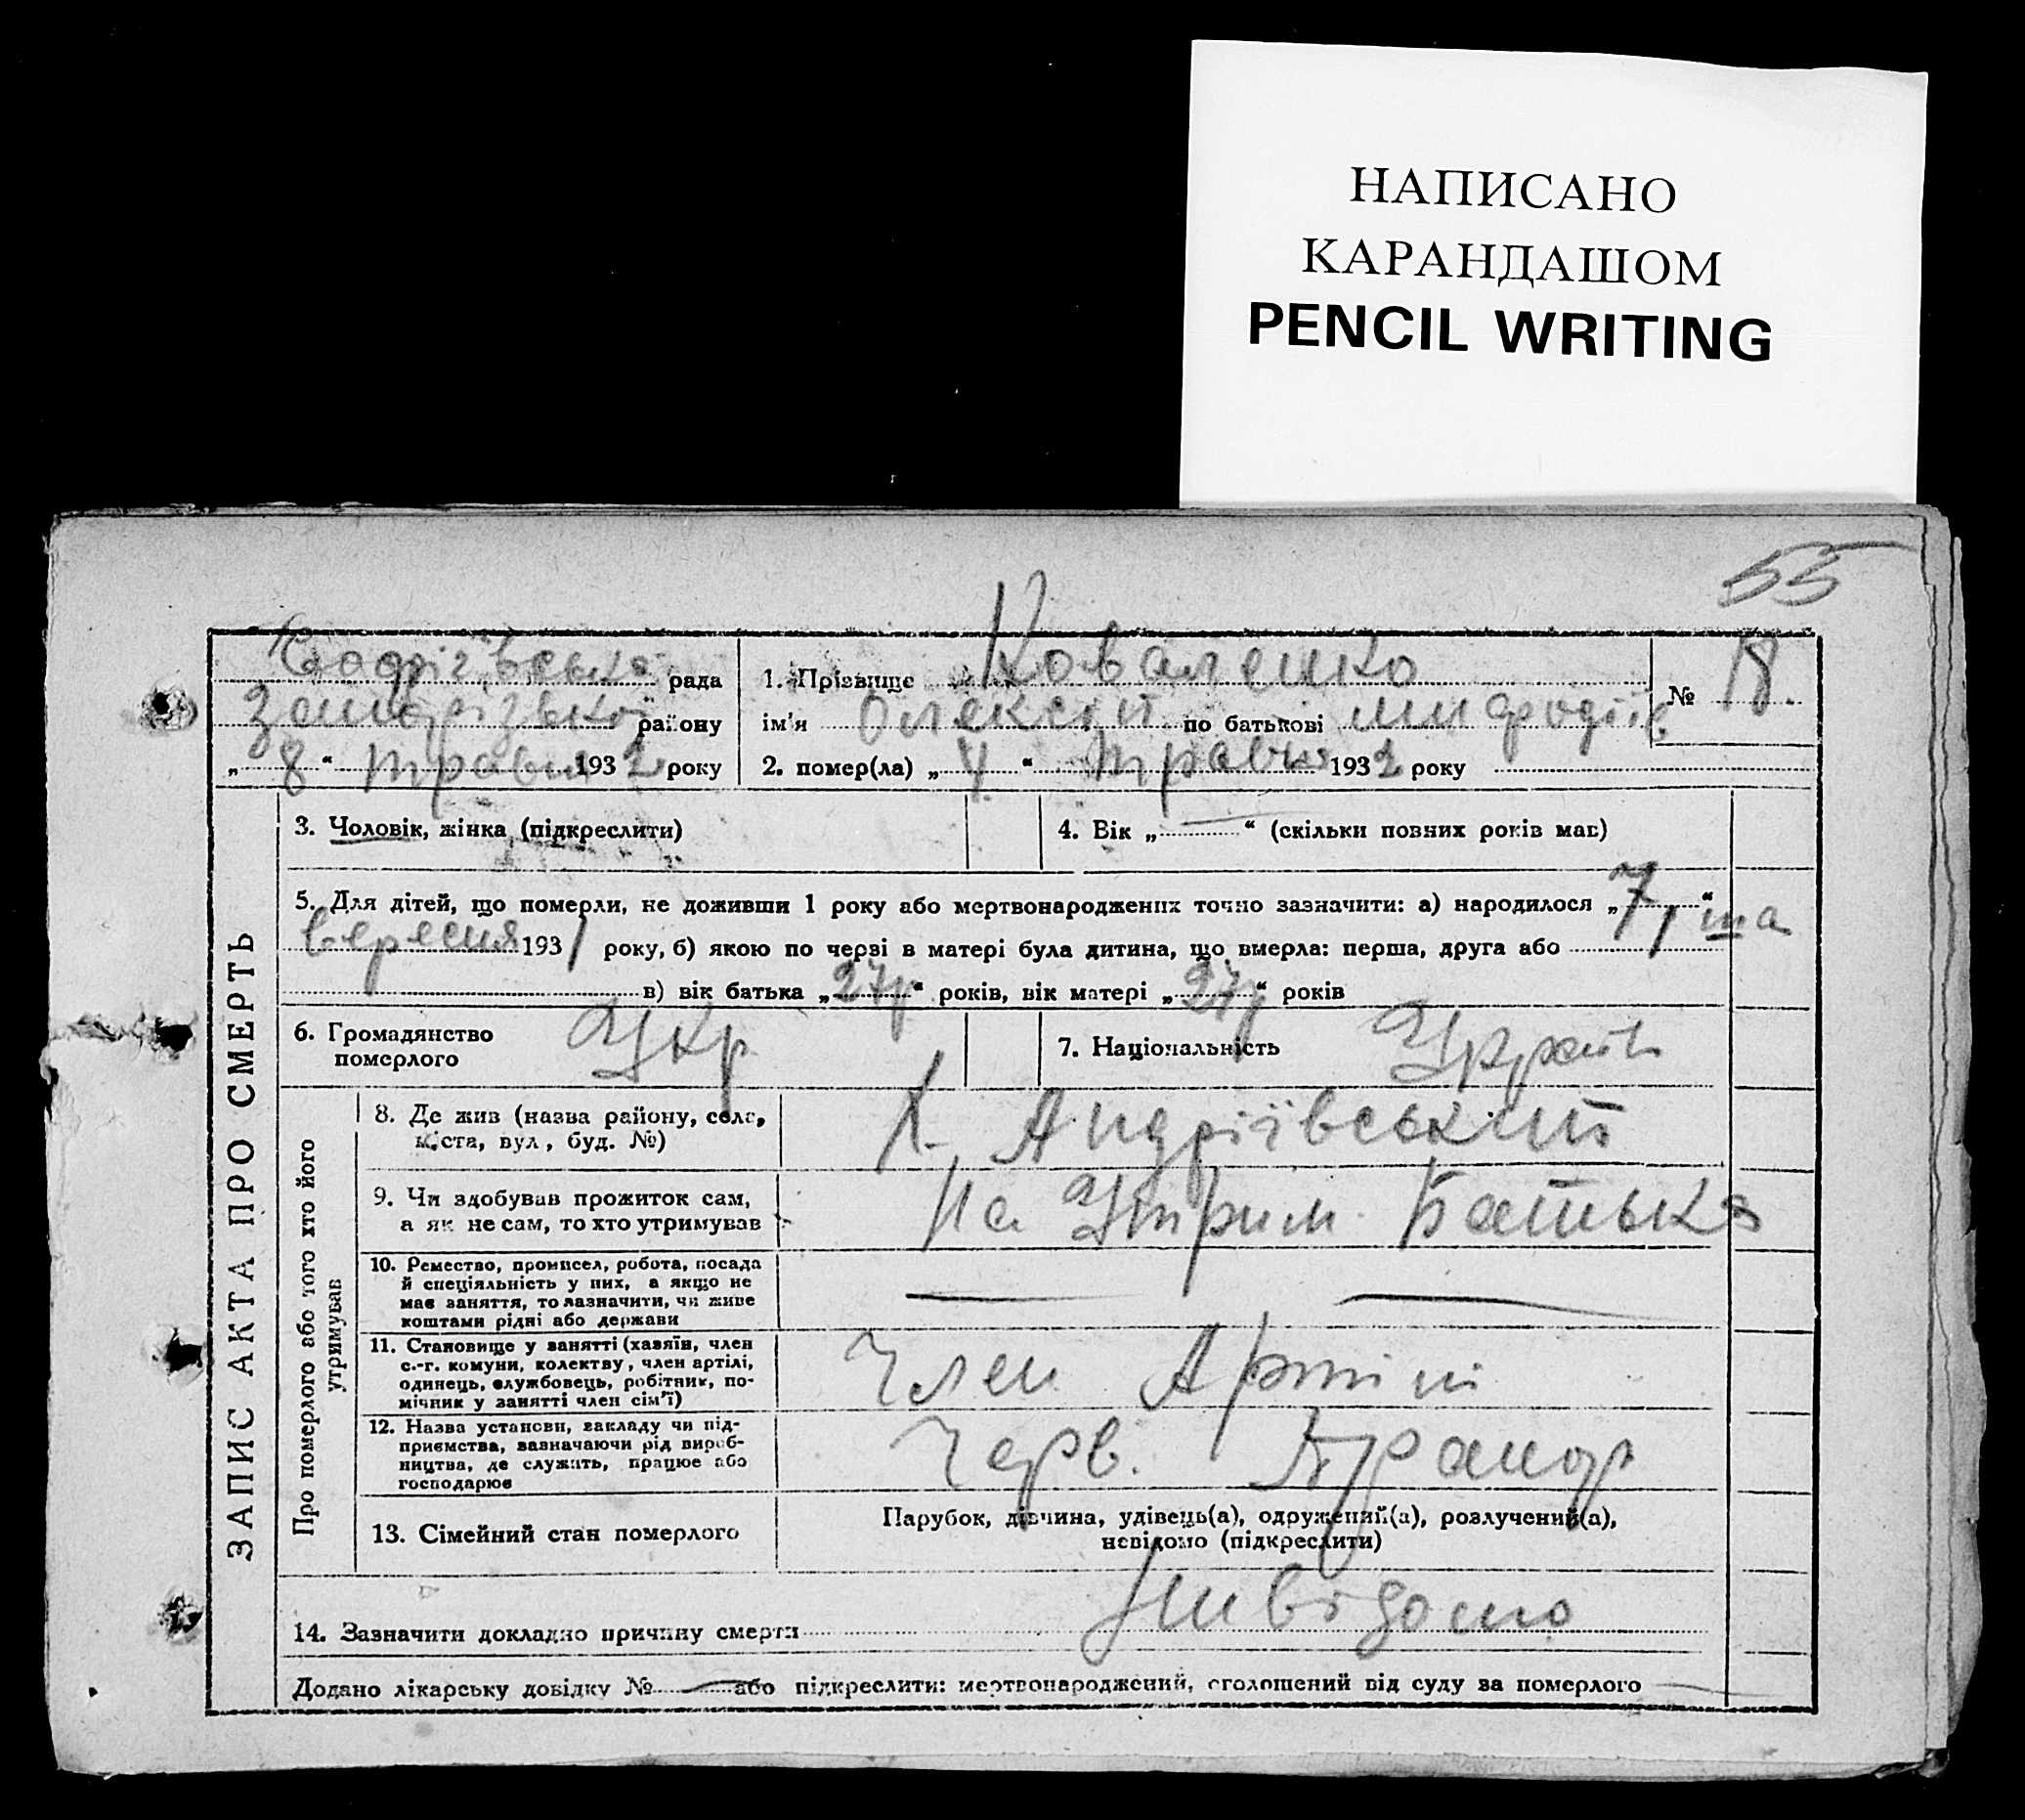 НАПИСАНО
КАРАНДАШОМ
PENCIL WRITING
55
рада
району
„ 8 “ травня 1932 року
1. Прізвище Коваленко
ім'я Олексій по батькові Мифодіїв
№ 18.
2. помер(ла) „ 4 “ травня 1932 року
ЗАПИС АКТА ПРО СМЕРТЬ
3. Чоловік, жінка (підкреслити)
4. Вік „ — “ (скільки повних років має)
5. Для дітей, що померли, не доживши 1 року або мертвонароджених точно зазначити: а) народилося „ 7 “
вересня 1931 року, б) якою по черві в матері була дитина, що вмерла: перша, друга або
в) вік батька „ 27р “ років, вік матері „ 27р “ років
6. Громадянство
померлого
Укр
7. Національність
Про померлого або того хто його
утримував
8. Де жив (назва району, села,
міста, вул, буд. №)
х. Андріївський
9. Чи здобував прожиток сам,
а як не сам, то хто утримував
На Утрим. Батька
10. Ремество, промисел, робота, посада
й спеціяльність у них, а якщо не
має заняття, то зазначити, чи живе
коштами рідні або держави
11. Становище у занятті (хазяїн, член
с.-г. комуни, колектву, член артілі,
одинець, службовець, робітник, по-
мічник у занятті член сім'ї)
Член Артіні
12. Назва установи, закладу чи під-
приємства, зазначаючи рід вироб-
ництва, де служить, працює або
господарює
Черв.
13. Сімейний стан померлого
Парубок, дівчина, удівець(а), одружений(а), розлучений(а),
невідомо (підкреслити)
14. Зазначити докладно причину смерти Нивідомо
Додано лікарську довідку № — або підкреслити: мертвонароджений, оголошений від суду за померлого